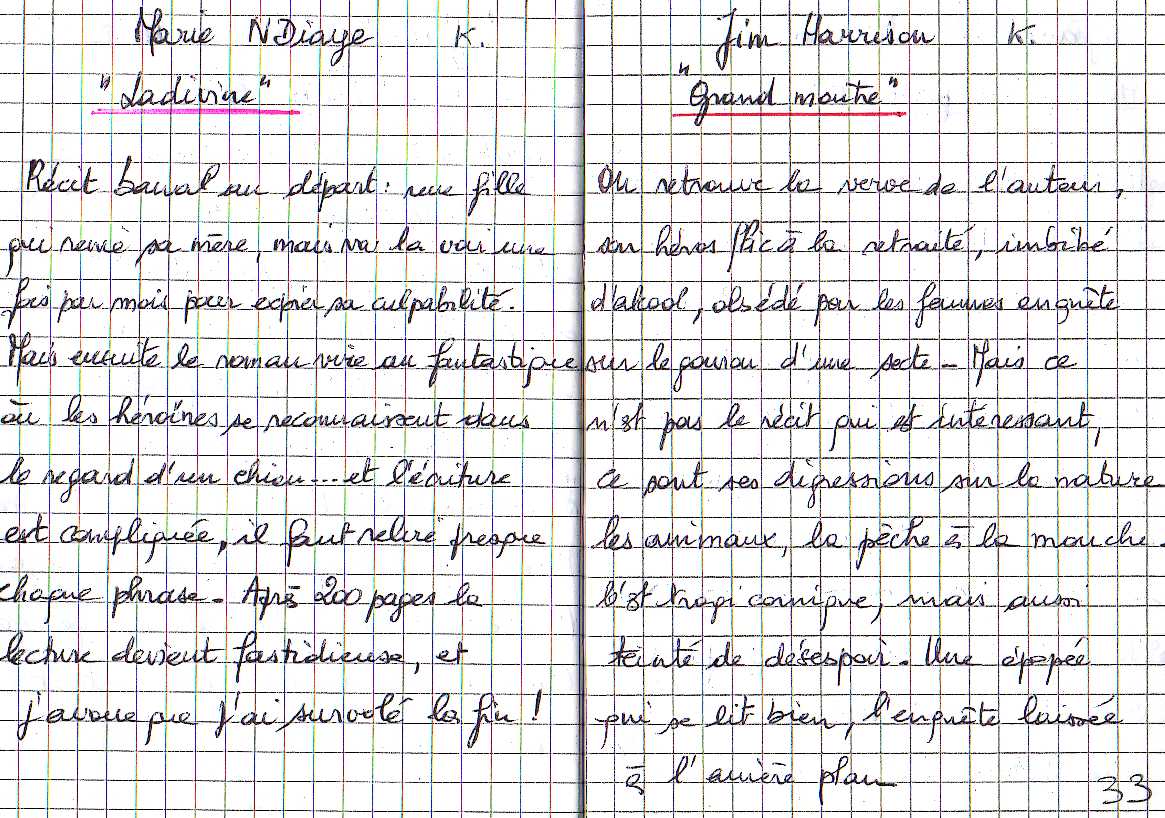 Marie NDiaye K.
"Ladivine"
Récit banal au départ : une fille
qui renie sa mère, mais va la voir une
fois par mois pour expier sa culpabilité.
Mais ensuite le roman vire au fantastique
où les héroïnes se reconnaissent dans
le regard d'un chien.... et l'écriture
est compliquée, il faut relire presque
chaque phrase - Après 200 pages la
lecture devient fastidieuse, et
j'avoue que j'ai survolé la fin !
Jim Harrison K.
"Grand maître"
On retrouve la verve de l'auteur,
son héros flic à la retraite, imbibé
d'alcool, obsédé par les femmes enquête
sur le gourou d'une secte - Mais ce
n'est pas le récit qui est intéressant,
ce sont ses digressions sur la nature
les animaux, la pêche à la mouche.
C'est tragi comique, mais aussi
teinté de désespoir. Une épopée
qui se lit bien, l'enquête laissée
à l'arrière plan
33